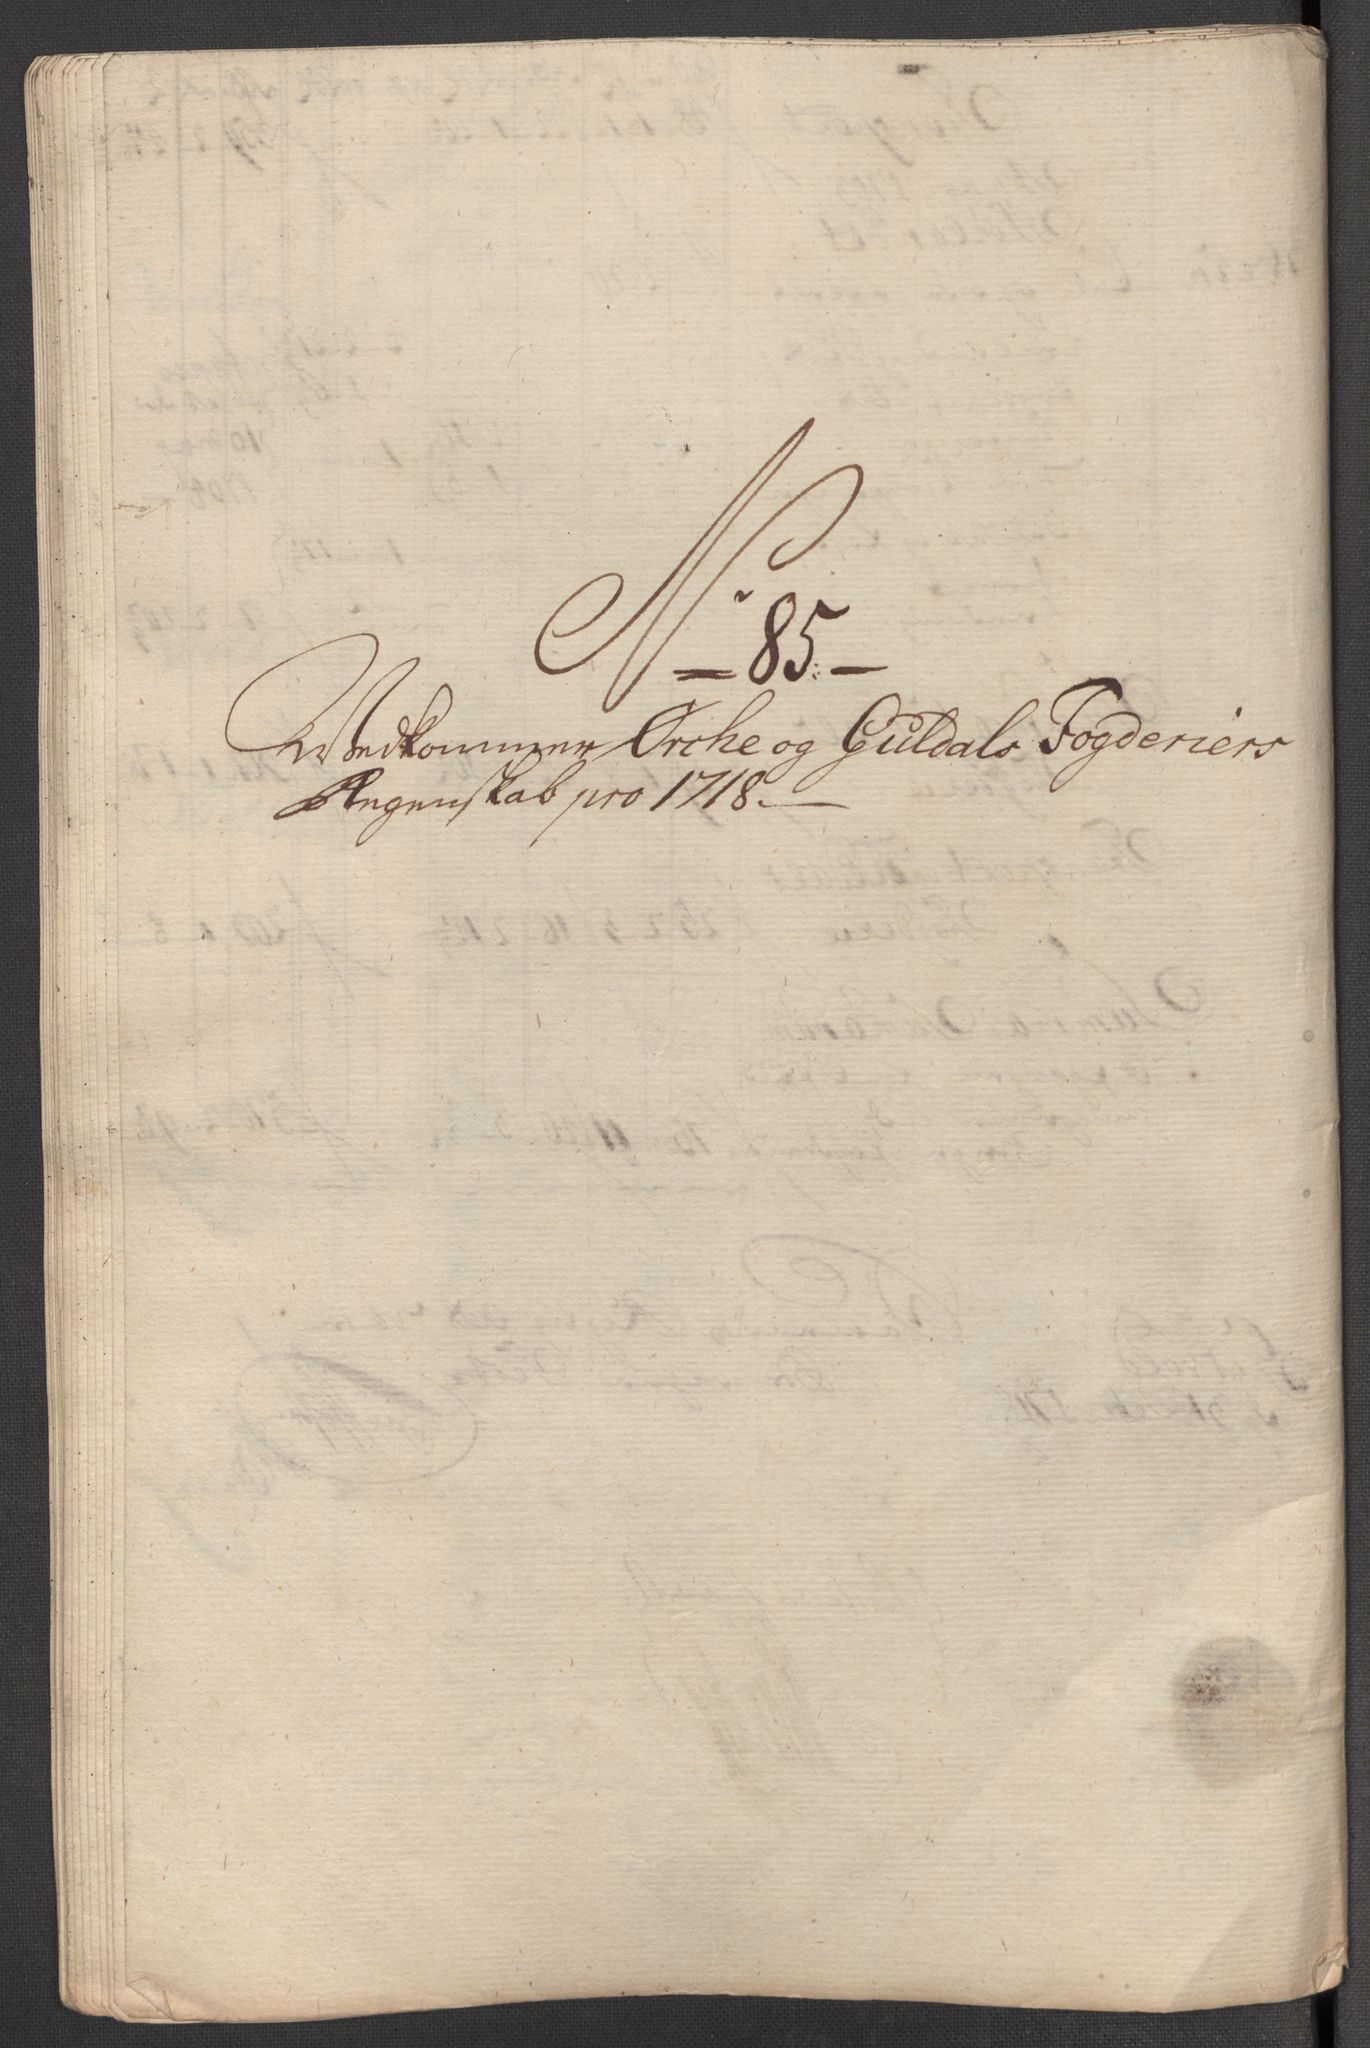 No
85.
Wedkommer Orche og Guldals Fogderiers
Regenskab pro 1718.